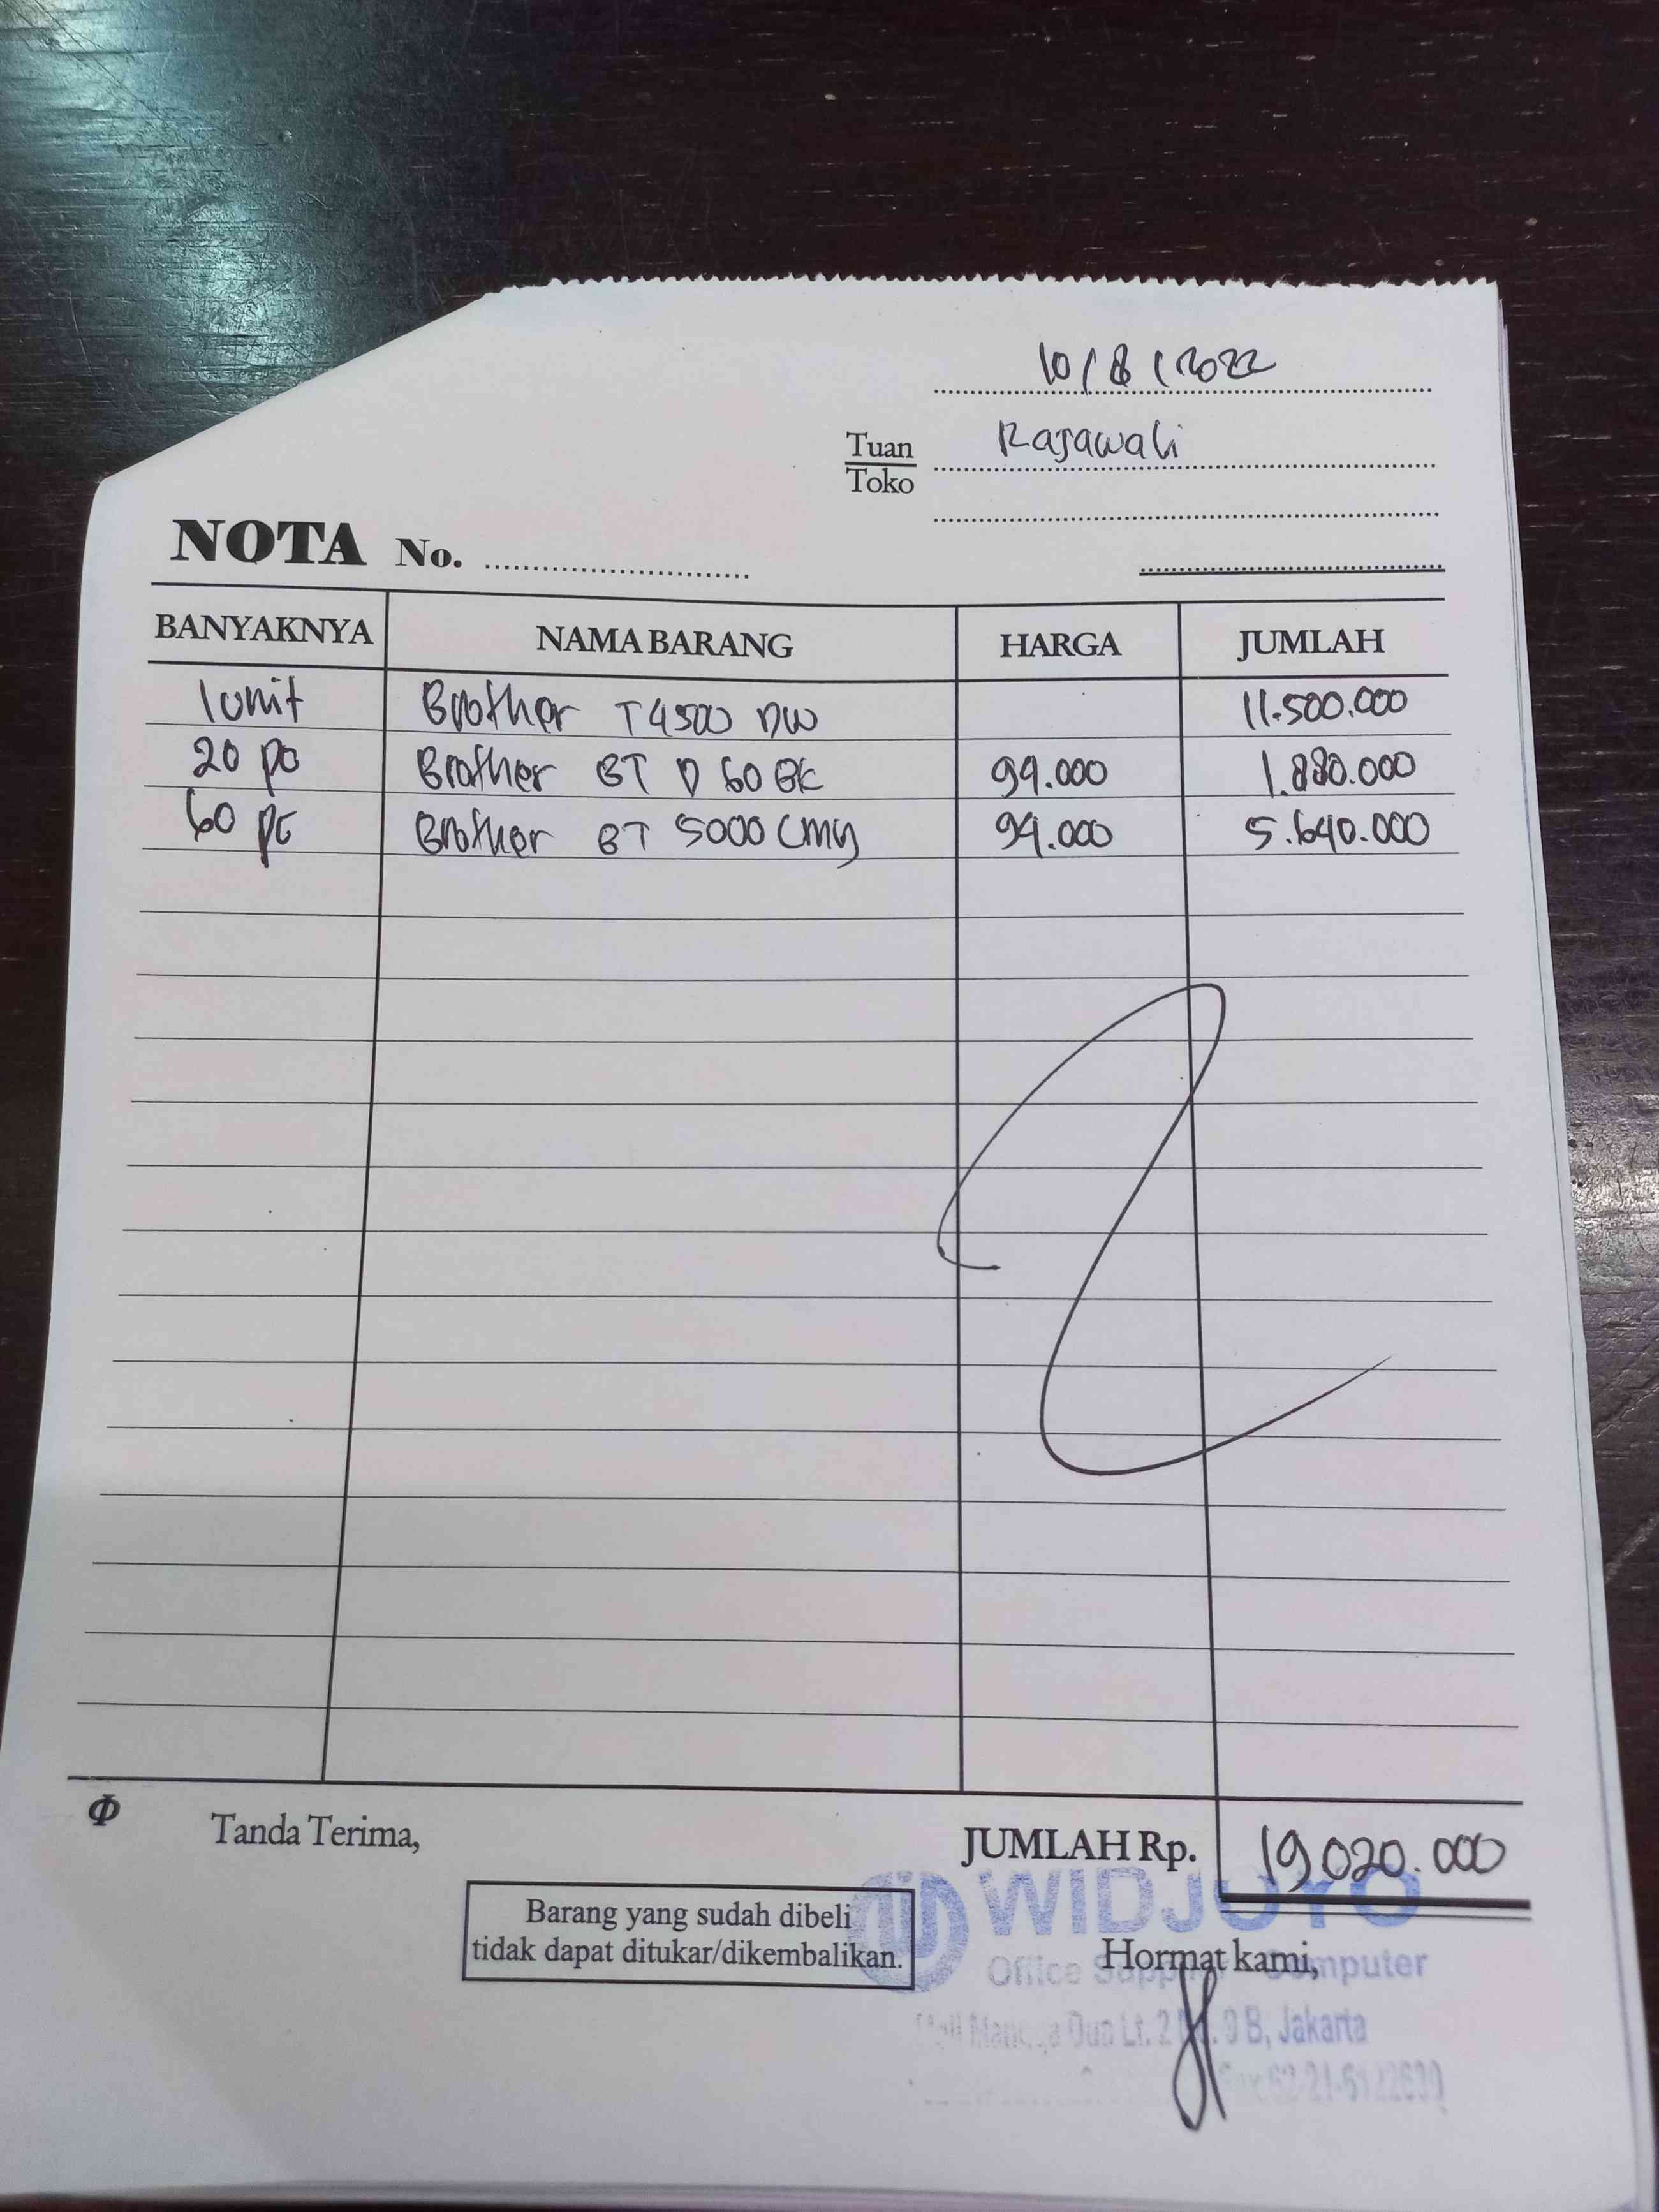 10/8/2022
Tuan
Toko
Rajawali
NOTA No.
BANYAKNYA NAMA BARANG HARGA JUMLAH
1 unit Brother T4500 DW 11.500.000
20 pc Brother BT D 60 BK 94.000 1.880.000
60 pc Brother BT 5000 CMY 94.000 5.640.000
Tanda Terima,
JUMLAH Rp. 19.020.000
Barang yang sudah dibeli
tidak dapat ditukar/dikembalikan.
WIDJOYO
Hormat kami,
Office Computer
Dua Lt. 2 Jakarta